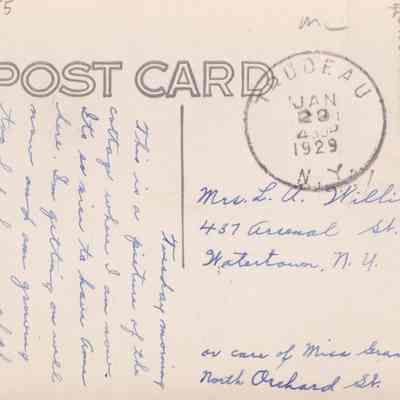 POST CARD
TRUDEAU
JAN
29
1929
N.Y.
Tuesday morning
This is a picture of the
cottage where I am now.
It's so nice to have Anna
here. I'm getting on well
now and am growing
Mrs. L. A. Willi
437 Arsenal St.
Watertown, N. Y.
or care of Miss Gra
North Orchard St.